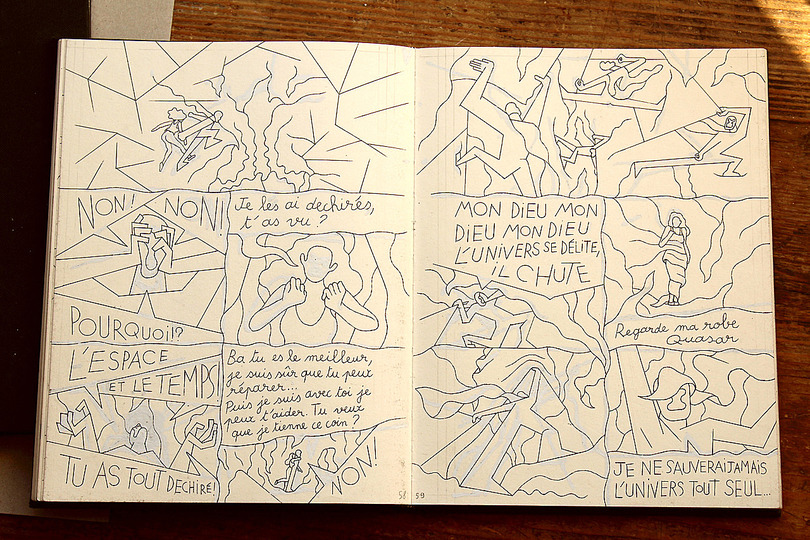 NON! NON!
Je les ai déchirés,
t'as vu ?
POURQUOI!?
L'ESPACE
ET LE TEMPS
TU AS TOUT DECHIRÉ!
Ba tu es le meilleur,
je suis sûr que tu peux
réparer...
Puis je suis avec toi je
peux t'aider. Tu veux
que je tienne ce coin ?
NON!
58
59
MON DIEU MON
DIEU MON DIEU
L'UNIVERS SE DÉLITE,
IL CHUTE
Regarde ma robe
Quasar
JE NE SAUVERAI JAMAIS
L'UNIVERS TOUT SEUL...